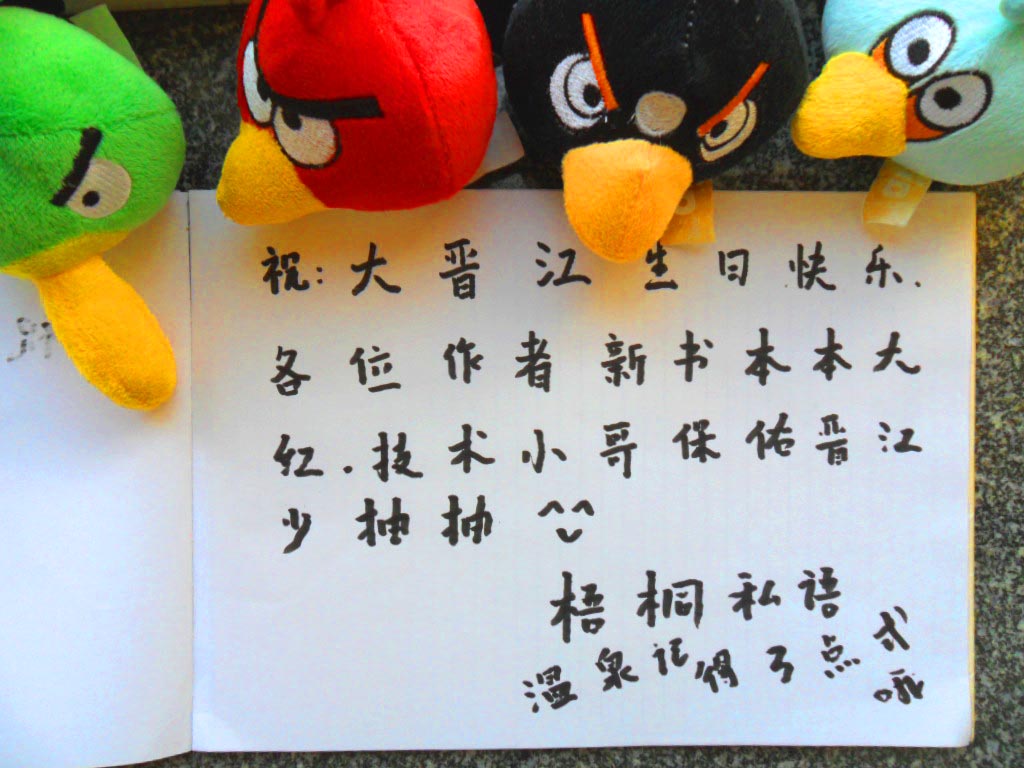 祝:大晋江生日快乐.
各位作者新书本本大
红.技术小哥保佑晋江
少抽抽 ^^
梧桐私语
温泉记得了点我哦